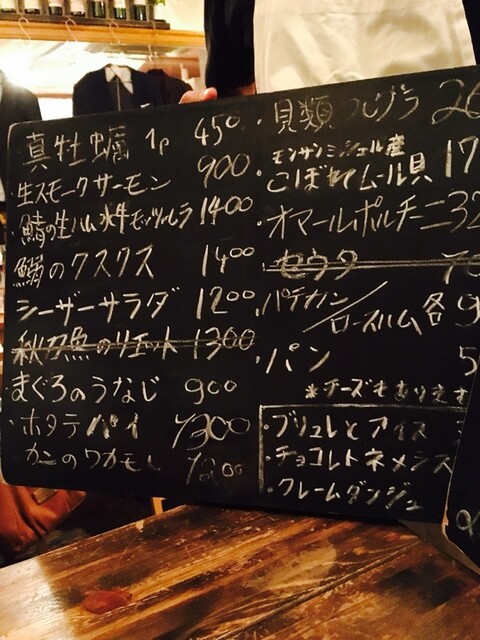 真牡蠣 1p 450
生スモークサーモン 900
鯖の生ハム 水牛モッツァレラ 1400
鰯のクスクス 1400
シーザーサラダ 1200
秋刀魚のリエット 1300
まぐろのうなじ 900
・ホタテパイ 1300
カニの 1200
・貝類 26
モンサンミッシェル産
こぼれムール貝 17
・オマールポルチーニ 32
・セウタ
・パテカン/ロースハム 各9
・パン 5
*チーズもあります
・ブリュレとアイス
・チョコレトネメシス
・クレームダンジュ